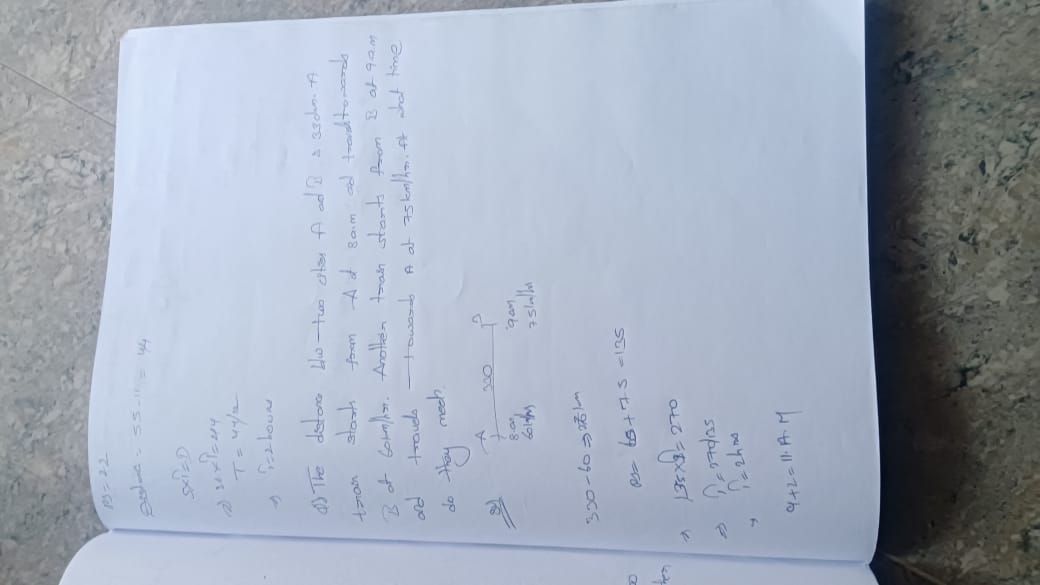 RS = 22
Distance = 55-11 = 44
SxT=D
22xT=44
T = 44/22
T=2hours
Q) The distance b/w two cities A ad B is 330km. A
train starts from A at 8am ad travel towards
B at 60km/hr. Another train starts from B at 9am
ad travels towards A at 75km/hr. At what time
do they meet.
A B
330
8am 9am
60km/h 75km/h
330-60 => 270km
RS= 60+75=135
135xT=270
T=270/135
T=2hrs
9+2=11.A.M